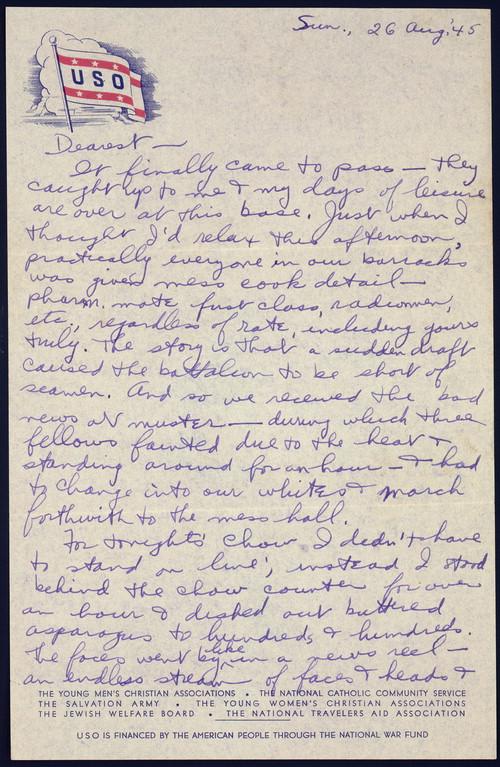 Sun., 26 Aug. '45
USO
Dearest —
It finally came to pass — they
caught up to me & my days of leisure
are over at this base. Just when I
thought I'd relax this afternoon,
practically everyone in our barracks
was given mess cook detail —
pharm. mate first class, radiomen,
etc, regardless of rate, including yours
truly. The story is that a sudden draft
caused the battalion to be short of
seamen. And so we received the bad
news at muster — during which three
fellows fainted due to the heat &
standing around for an hour — & had
to change into our whites & march
forthwith to the mess hall.
For tonight's chow I didn't have
to stand on line; instead I stood
behind the chow counter for over
an hour & dished out buttered
asparagus to hundreds & hundreds.
The faces went by like in a news reel —
an endless stream of faces & heads &
THE YOUNG MEN'S CHRISTIAN ASSOCIATIONS • THE NATIONAL CATHOLIC COMMUNITY SERVICE
THE SALVATION ARMY • THE YOUNG WOMEN'S CHRISTIAN ASSOCIATIONS
THE JEWISH WELFARE BOARD • THE NATIONAL TRAVELERS AID ASSOCIATION
USO IS FINANCED BY THE AMERICAN PEOPLE THROUGH THE NATIONAL WAR FUND